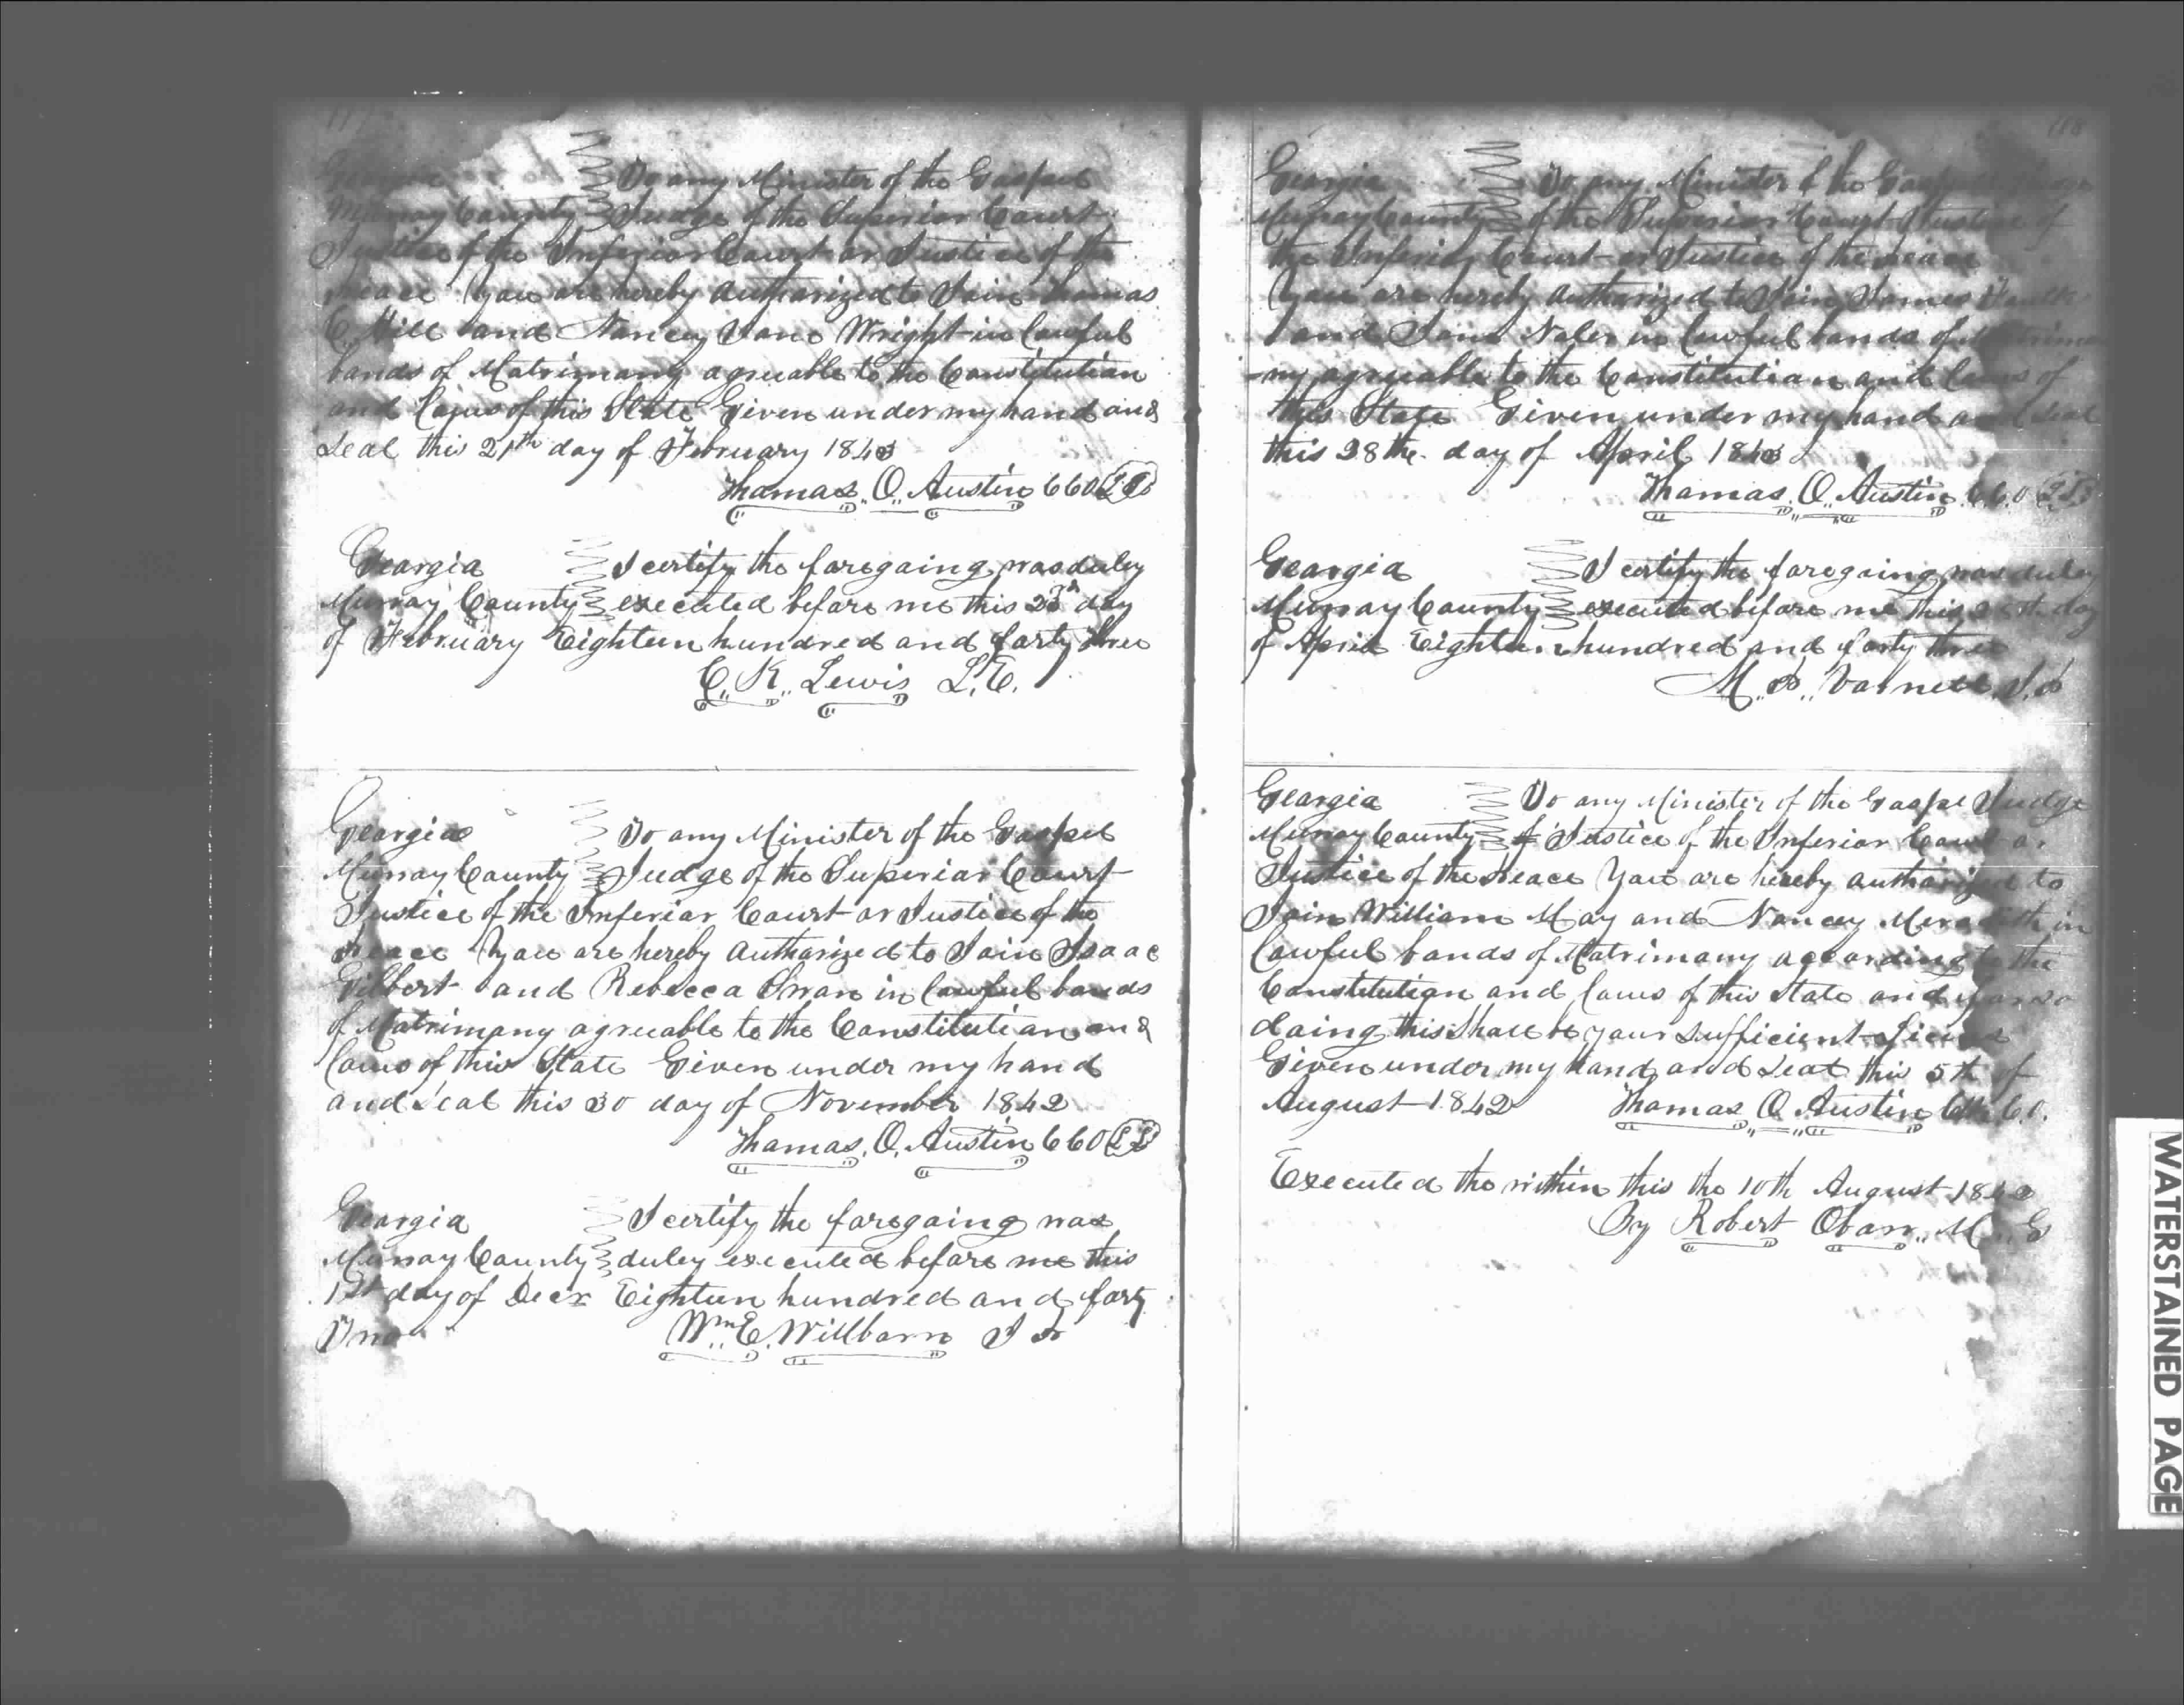 117
Georgia To any Minister of the Gospel
Murray County Judge of the Superior Court
Justice of the Inferior Court or Justice of the
Peace You are hereby authorized to Join Thomas
C. Hill and Nancy Jane Wright in lawful
bands of Matrimony agreeable to the Constitution
and laws of this State Given under my hand and
Seal this 21th day of February 1843
Thomas. O. Austin CCO LS
Georgia I certify the foregoing was duley
Murray County executed before me this 23th day
of February Eighteen hundred and forty three
C. K. Lewis L. E.
Georgia To any Minister of the Gospel
Murray County Judge of the Superior Court
Justice of the Inferior Court or Justice of the
Peace You are hereby authorized to Join Isaac
Gilbert and Rebecca Swan in lawful bands
of Matrimony agreeable to the Constitution and
laws of this State Given under my hand
and Seal this 30 day of November 1842
Thomas. O. Austin CCO LS
Georgia I certify the foregoing was
Murray County duley executed before me this
1st day of Decr Eighteen hundred and forty
Two Wm. E. Willborn J P
118
Georgia To any Minister of the Gospel Judge
Murray County of the Superior Court Justice of
the Inferior Court or Justice of the peace
You are hereby authorized to Join James
and Jane Noles in lawful bands of Matrimo
-ny agreeable to the Constitution and laws of
this State Given under my hand and Seal
this 28th day of April 1843
Thomas. O. Austin C.C.O LS
Georgia I certify the foregoing was duley
Murray County executed before me this 28th day
of April Eighteen hundred and forty three
M. P. Varnell J. P
Georgia To any Minister of the Gospel Judge
Murray County of Justice of the Inferior Court or
Justice of the Peace You are hereby authorized to
Join William May and Nancy Meredith in
lawful bands of Matrimony according to the
Constitution and laws of this State and for so
doing this Shall be your sufficient License
Given under my hand and Seal this 5th of
August 1842 Thomas O. Austin Clk C.O.
Executed the within this the 10th August 1842
By Robert Obarr. M. G
WATERSTAINED PAGE